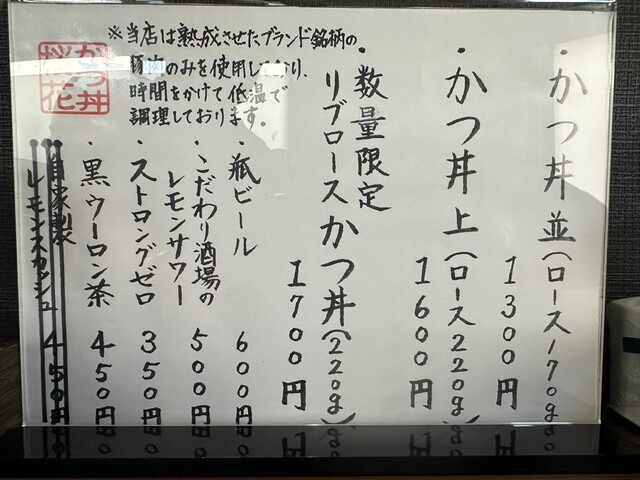 ・かつ丼並(ロース170g)
1300円
・かつ丼上(ロース220g)
1600円
・数量限定
リブロースかつ丼(220g)
1700円
※当店は熟成させたブランド銘柄の
豚肉のみを使用しており、
時間をかけて低温で
調理しております。
・瓶ビール 600円
・こだわり酒場の
レモンサワー 500円
・ストロングゼロ 350円
・黒ウーロン茶 450円
・自家製
レモンスカッシュ 450円
かつ丼
桜花